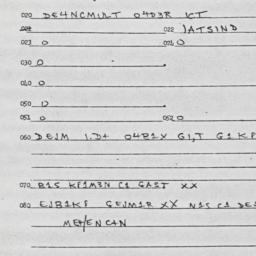 020 DE4NCMULT 04D3R KT
022 IATSIND
023 0 021 0
030 0
040 0
050 0
051 0 052 0
060 DEJM I.D+ 04B1X G1,T G1 KF
070 B1S KF1M3N C1 GAST XX
080 EJB1KF GEJM1R XX N1S C1 DE
MEHENCAN